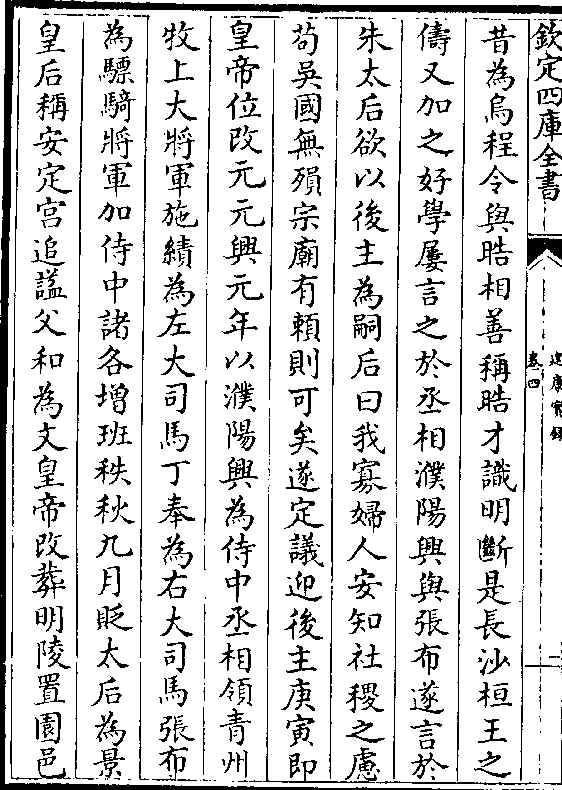 欽定四庫全書
建康實錄
卷四
二
昔為烏程令與晧相善稱晧才識明斷是長沙桓王之
儔又加之好學屢言之於丞相濮陽興與張布遂言於
朱太后欲以後主為嗣后曰我寡婦人安知社稷之慮
茍吳國無殞宗廟有賴則可矣遂定議迎後主庚寅即
皇帝位改元元興元年以濮陽興為侍中丞相領青州
牧上大將軍施績為左大司馬丁奉為右大司馬張布
為驃騎將軍加侍中諸各增班秩秋九月貶太后為景
皇后稱安定宮追諡父和為文皇帝改葬明陵置園邑